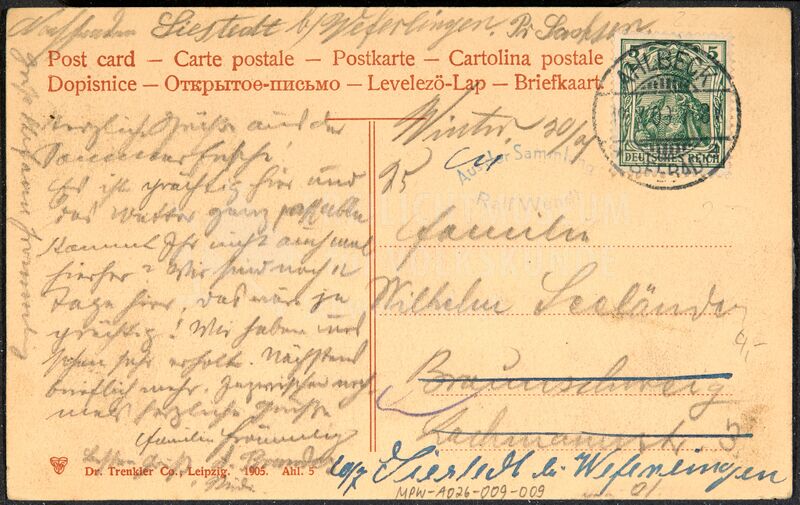 Siestedt b/ Weferlingen. Pr Sachsen.
Post card – Carte postale – Postkarte – Cartolina postale
Dopisnice – Открытое-письмо – Levelezö-Lap – Briefkaart.
5 5
DEUTSCHES REICH
AHLBECK
SEEBAD
Winter, 30/
Aus der Sammlung
Ralf Wendt
25
Familie
Wilhelm Seeländer
Braunschweig
Lachmannstr. 3
Siestedt bei Weferlingen
Herzliche Grüße aus der
Sommerfrische!
Es ist prächtig hier und
das Wetter ganz passabel.
Kommt Ihr nicht auch mal
hierher? Wir sind noch
Tage hier, das wäre ja
prächtig! Wir haben uns
schon sehr erholt. Nächstens
brieflich mehr. Inzwischen noch
mals herzliche Grüße
Familie
Dr. Trenkler Co., Leipzig. 1905. Ahl. 5
MPW-A026-009-009